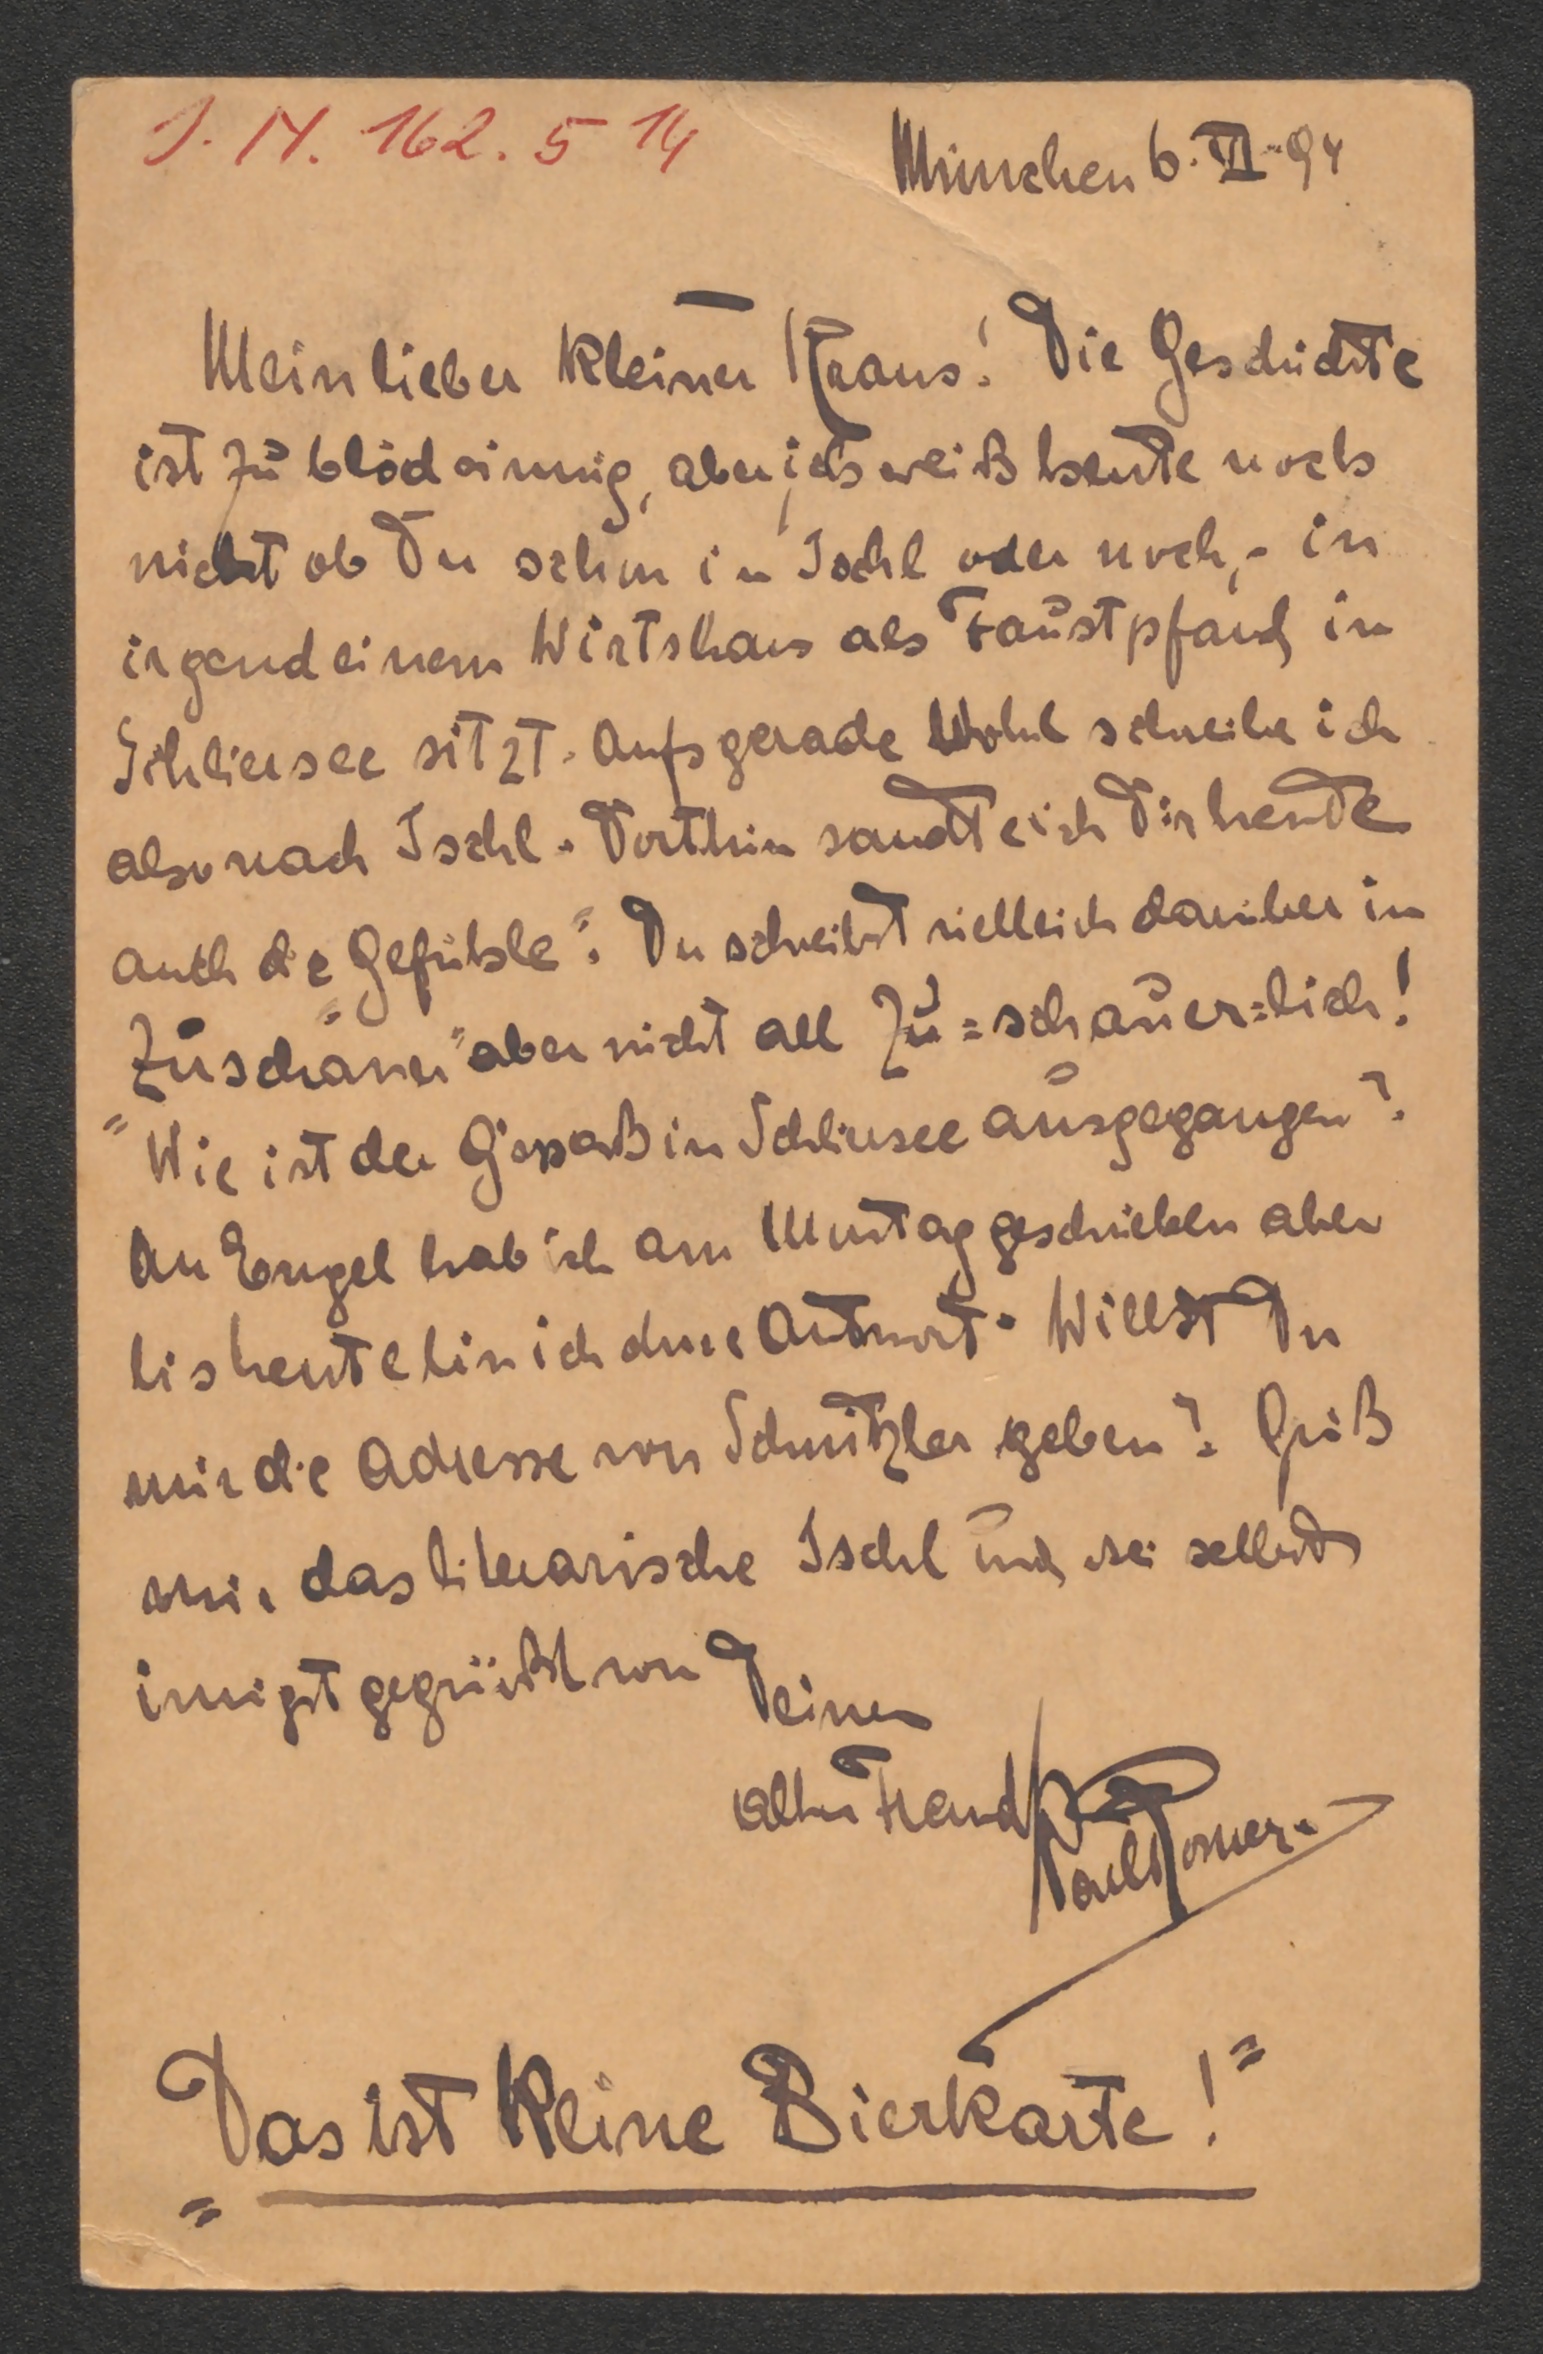 J. N. 162.514
München 6. VI. 94
Mein lieber kleiner Kraus! Die Geschichte
ist zu blödsinnig, aber ich weiß heute noch
nicht ob Du schon in Ischl oder noch, - in
irgend einem Wirtshaus als Faustpfand in
Schliersee sitzt. Aufs gerade Wohl schreibe ich
also nach Ischl. Dorthin sandte ich Dir heute
auch die „Gefühle“. Du schreibst vielleich darüber in
„Zuschauer“ aber nicht all zu=schauer=lich!
Wie ist der G'spaß in Schliersee ausgegangen?
An Engel hab ich am Montag geschrieben aber
bis heute bin ich ohne Antwort. Willst Du
mir die Adresse von Schnitzler geben? Grüß
mir das literarische Ischl und sei selbst
innigst gegrüßt von Deinem
alten Freund
Paul Horner.
„Das ist keine Bierkarte!“